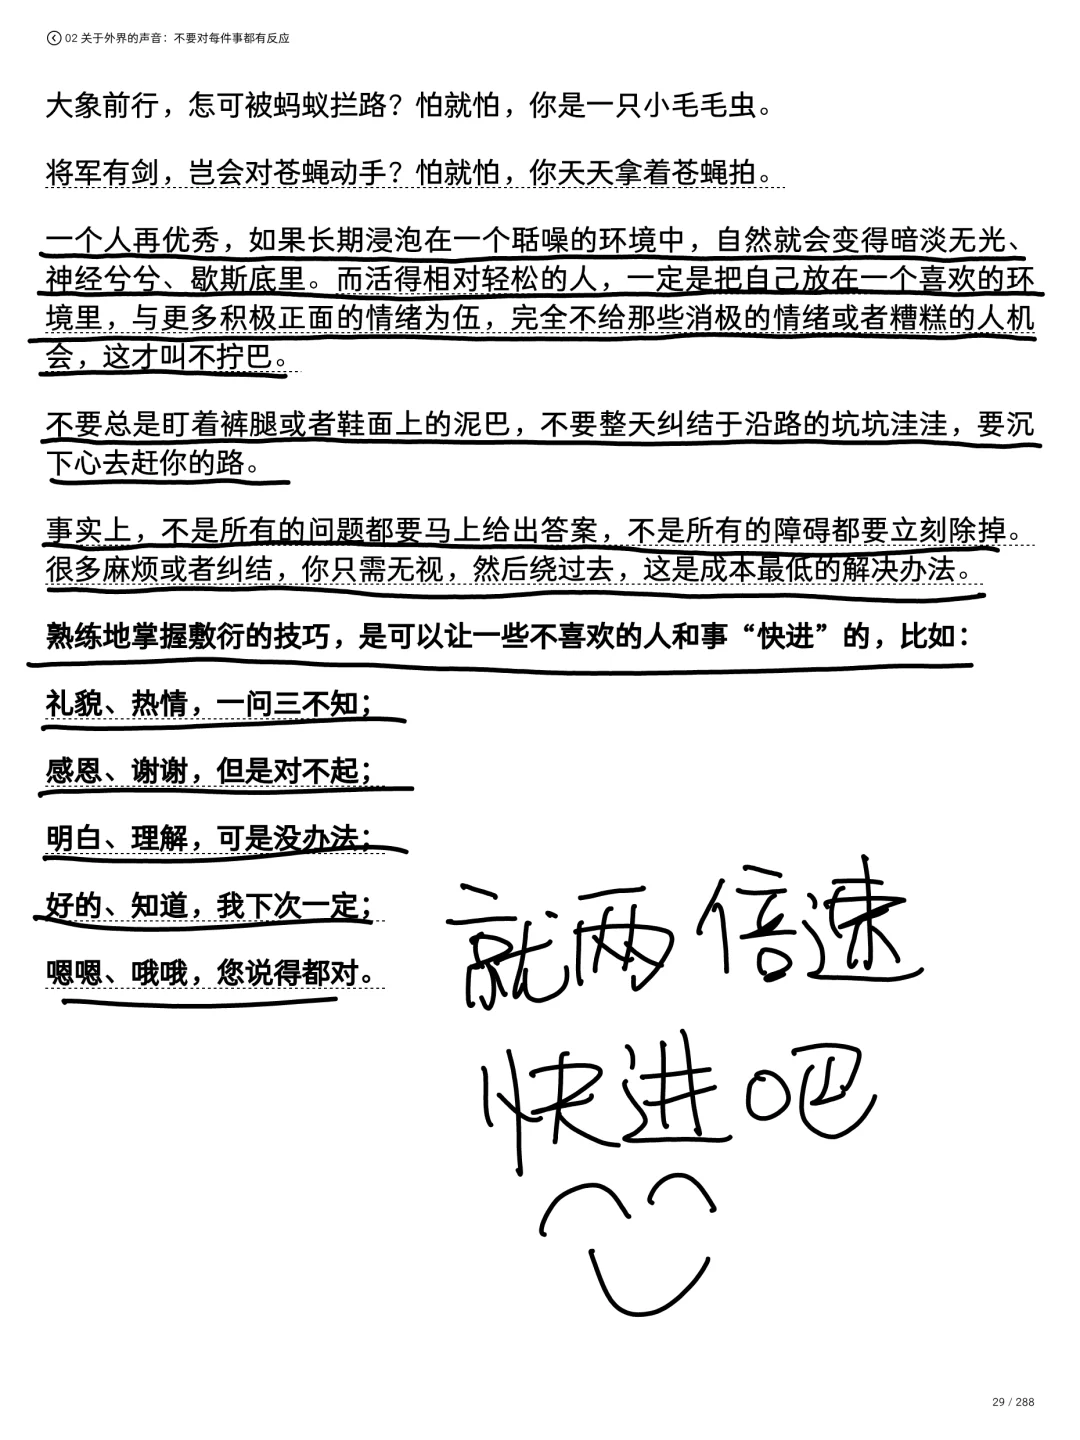 02 关于外界的声音：不要对每件事都有反应
大象前行，怎可被蚂蚁拦路？怕就怕，你是一只小毛毛虫。
将军有剑，岂会对苍蝇动手？怕就怕，你天天拿着苍蝇拍。
一个人再优秀，如果长期浸泡在一个聒噪的环境中，自然就会变得暗淡无光、
神经兮兮、歇斯底里。而活得相对轻松的人，一定是把自己放在一个喜欢的环
境里，与更多积极正面的情绪为伍，完全不给那些消极的情绪或者糟糕的人机
会，这才叫不拧巴。
不要总是盯着裤腿或者鞋面上的泥巴，不要整天纠结于沿路的坑坑洼洼，要沉
下心去赶你的路。
事实上，不是所有的问题都要马上给出答案，不是所有的障碍都要立刻除掉。
很多麻烦或者纠结，你只需无视，然后绕过去，这是成本最低的解决办法。
熟练地掌握敷衍的技巧，是可以让一些不喜欢的人和事“快进”的，比如：
礼貌、热情，一问三不知；
感恩、谢谢，但是对不起；
明白、理解，可是没办法；
好的、知道，我下次一定；
嗯嗯、哦哦，您说得都对。
就两倍速
快进吧
29 / 288